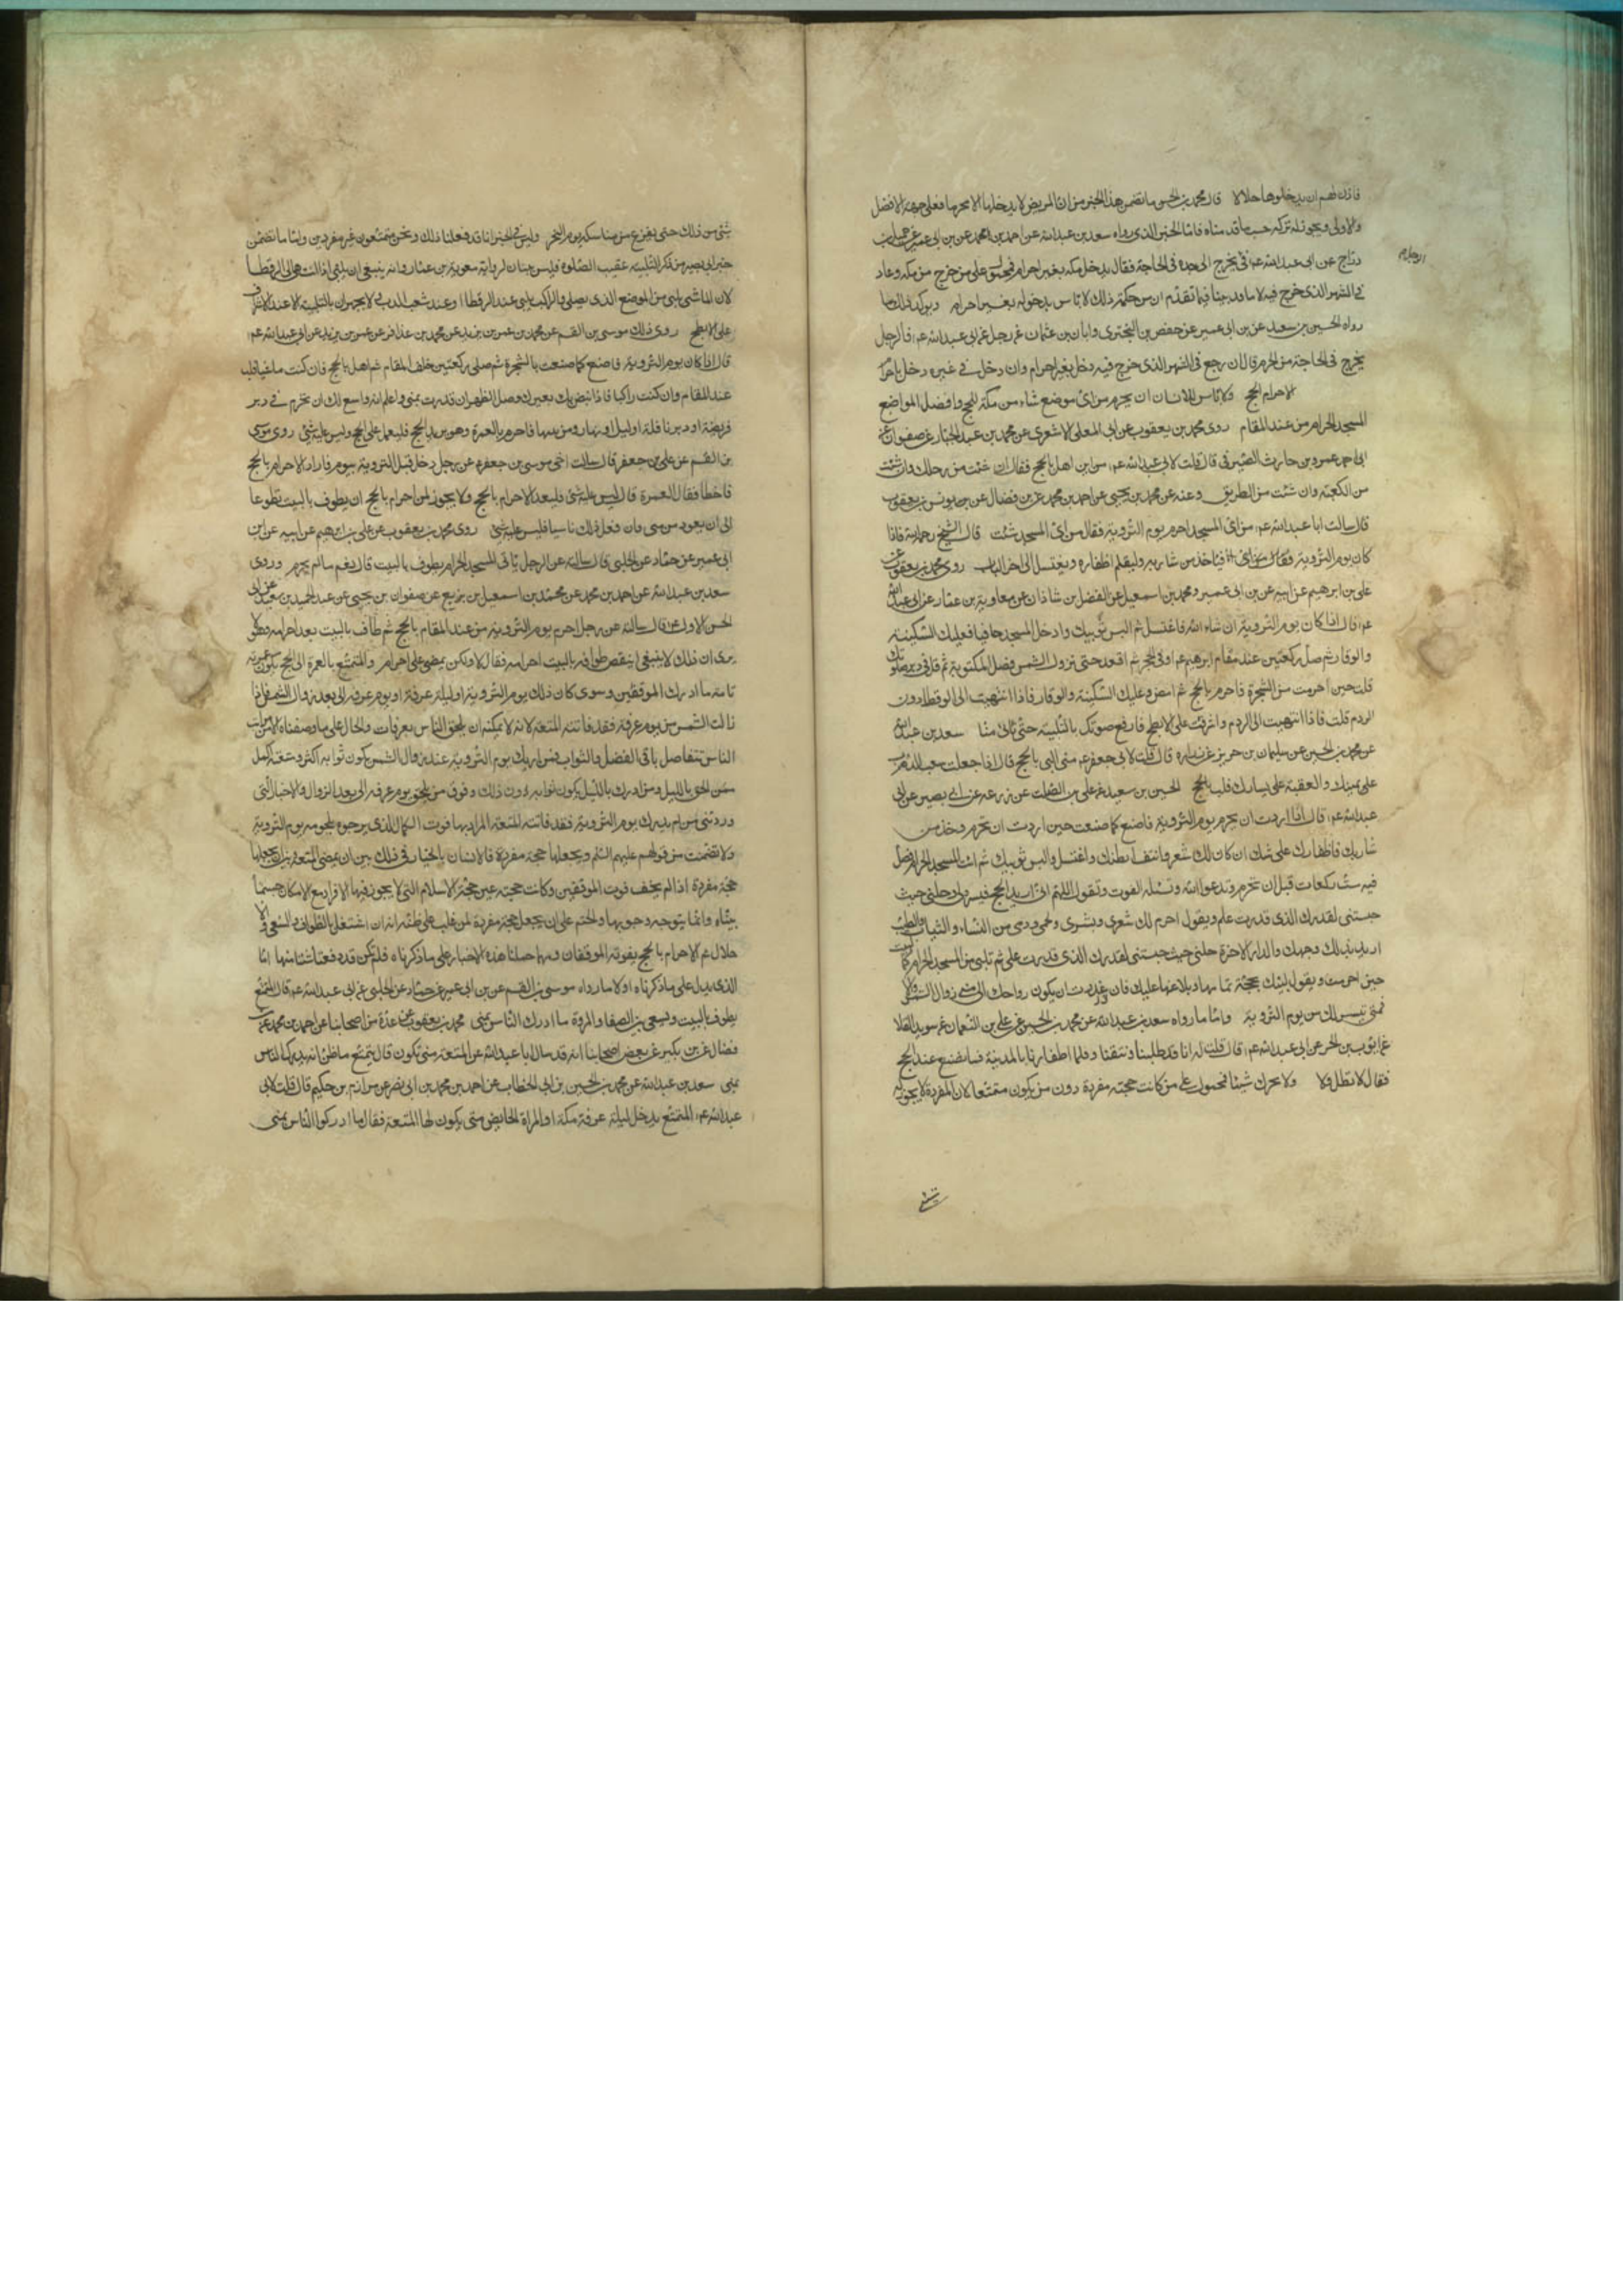 فاذن لهم ان يدخلوها حلالا قال محمد بن الحسن ما تضمن هذا الخبر من ان المريض لا يدخلها الا محرما فعلى جهة الافضل
والاولى ويجوز له تركه حسب ما قدمناه فاما الخبر الذى رواه سعد بن عبد الله عن احمد بن محمد عن بن ابى عمير عن جميل بن
دراج عن ابى عبد الله عم فى يخرج الى جدة فى الحاجة فقال يدخل مكه بغير احرام فمحمول على من خرج من مكه وعاد
الرجل
فى الشهر الذى خرج فيه لانا قد بينا فيما تقدم ان من حكمه ذلك لا باس بدخوله بغير احرام ويوكد ذلك ما
رواه الحسين بن سعيد عن بن ابى عمير عن حفص بن البخترى وابان بن عثمان عن رجل عن ابى عبد الله عم فى الرجل
يخرج فى الحاجة من الحرم قال ان رجع فى الشهر الذى خرج فيه دخل بغير احرام وان دخل فى غيره دخل باحرام
الاحرام للحج ولا باس للانسان ان يحرم من اى موضع شاء من مكة للحج وافضل المواضع
المسجد الحرام من عند المقام روى محمد بن يعقوب عن ابى على الاشعرى عن محمد بن عبد الجبار عن صفوان عن
ابى احمد عمرو بن حريث الصيرفى قال قلت لابى عبد الله عم من اين اهل بالحج فقال ان شئت من رحلك وان شئت
من الكعبة وان شئت من الطريق وعنه عن محمد بن يحيى عن احمد بن محمد عن بن فضال عن يونس بن يعقوب
قال سالت ابا عبد الله عم من اى المسجد احرم يوم التروية فقال من اى المسجد شئت قال الشيخ رحمه الله فاذا
كان يوم التروية فلياخذ من شاربه وليقلم اظفاره ويغتسل الى اخر الباب روى محمد بن يعقوب عن
على بن ابرهيم عن ابيه عن بن ابى عمير ومحمد بن اسمعيل عن الفضل بن شاذان عن معاوية بن عمار عن ابى عبد الله
عم قال اذا كان يوم التروية ان شاء الله فاغتسل ثم البس ثوبيك وادخل المسجد حافيا وعليك السكينة
والوقار ثم صل ركعتين عند مقام ابرهيم عم او فى الحجر ثم اقعد حتى تزول الشمس فصل المكتوبة ثم قل فى دبر صلوتك
كما قلت حين احرمت من الشجرة فاحرم بالحج ثم امض وعليك السكينة والوقار فاذا انتهيت الى الرقطا دون
الردم فلب فاذا انتهيت الى الردم واشرفت على الابطح فارفع صوتك بالتلبية حتى تاتى منا سعد بن عبد الله
عن محمد بن الحسين عن سليمان بن حريز عن زرارة قال قلت لابى جعفر عم متى البى بالحج قال اذا جعلت شعب الدب
على يمينك والعقبة على يسارك فلب بالحج الحسين بن سعيد عن على بن الصلت عن زرعه عن ابى بصير عن ابى
عبد الله عم قال اذا اردت ان تحرم يوم التروية فاصنع كما صنعت حين اردت ان تحرم وخذ من
شاربك واظفارك وعانتك ان كان لك شعر وانتف ابطك واغتسل والبس ثوبيك ثم ائت المسجد الحرام فصل
فيه ست ركعات قبل ان تحرم وتدعوا الله وتسله العون وتقول اللهم انى اريد الحج فيسره لى وحلنى حيث
حبستنى لقدرك الذى قدرت على وتقول احرم لك شعرى وبشرى ولحمى ودمى من النساء والثياب والطيب
اريد بذلك وجهك والدار الاخرة وحلنى حيث حبستنى لقدرك الذى قدرت على ثم تلبى من المسجد الحرام كما لبيت
حين احرمت وتقول لبيك بحجة تمامها وبلاغها عليك فان قدرت ان يكون رواحك الى منى زوال الشمس والا
فمتى تيسر لك من يوم التروية واما ما رواه سعد بن عبد الله عن محمد بن الحسين عن على بن النعمان عن سويد القلا
عن ايوب بن الحر عن ابى عبد الله عم قال قلت له انا قد اطلينا ونتفنا وقلمنا اظفارنا بالمدينة فما نصنع عند الحج
فقال لا تطل ولا تنتف ولا تحرك شيئا فمحمول على من كانت حجته مفردة دون من يكون متمتعا لان المفرد لا يجوز له
شئ من ذلك حتى يفرغ من مناسكه يوم النحر وليس فى الخبر انا قد فعلنا ذلك ونحن متمتعون غير مفردين واما ما تضمن
خبر ابى بصير من ذكر التلبية عقيب الصلوة فليس بمناف لرواية معوية بن عمار وانه ينبغى ان يلبى اذا انتهى الى الرقطا
لان الماشى يلبى من الموضع الذى يصلى والراكب يلبى عند الرقطا او عند شعب الدب ولا يجهران بالتلبية الا عند الاشراف
على الابطح روى ذلك موسى بن القسم عن محمد بن عمر بن يزيد عن محمد بن عذافر عن عمر بن يزيد عن ابى عبد الله عم
قال اذا كان يوم التروية فاصنع كما صنعت بالشجرة ثم صلى ركعتين خلف المقام ثم اهل بالحج فان كنت ماشيا فلب
عند المقام وان كنت راكبا فاذا نهض بك بعيرك وصل الظهر ان قدرت بمنى واعلم انه واسع لك ان تحرم فى دبر
فريضة او دبر نافلة او ليل او نهار ومن سها فاحرم بالعمرة وهو يريد الحج فليعمل على الحج وليس عليه شئ روى موسى
بن القسم عن على بن جعفر قال سالت اخى موسى بن جعفر عم عن رجل دخل قبل التروية بيوم فاراد الاحرام بالحج
فاخطا فقال العمرة قال ليس عليه شئ فليعد الاحرام بالحج ولا يجوز لمن احرم بالحج ان يطوف بالبيت تطوعا
الى ان يعود من منى فان فعل ذلك ناسيا فليس عليه شئ روى محمد بن يعقوب عن على بن ابرهيم عن ابيه عن ابن
ابى عمير عن حماد عن الحلبى قال سالته عن الرجل ياتى المسجد الحرام يطوف بالبيت قال نعم ما لم يحرم وروى
سعد بن عبد الله عن احمد بن محمد عن محمد بن اسمعيل بن بزيع عن صفوان بن يحيى عن عبد الحميد بن سعيد عن ابى
الحسن الاول عم قال سالته عن رجل احرم يوم التروية من عند المقام بالحج ثم طاف بالبيت بعد احرامه وهو لا
يرى ان ذلك لا ينبغى اينقض طوافه بالبيت احرامه فقال لا ولكن يمضى على احرامه والمتمتع بالعمرة الى الحج يكون عمرته
تامة ما ادرك الموقفين وسوى كان ذلك يوم التروية او ليلة عرفة او يوم عرفه الى بعد زوال الشمس فاذا
زالت الشمس من يوم عرفة فقد فاتته المتعة لانه لا يمكنه ان يلحق الناس بعرفات والحال على ما وصفناه الا ان مراتب
الناس تتفاضل باقى الفضل والثواب فمن ادرك يوم التروية عند زوال الشمس يكون ثوابه اكثر ومتعته اكمل
ممن لحق بالليل ومن ادرك بالليل يكون ثوابه دون ذلك وفوق من يلحق يوم عرفه الى بعد الزوال والاخبار التى
وردت فى من لم يدرك يوم التروية فقد فاتته المتعة المراد بها فوت الكمال الذى يرجوه بلحوقه يوم التروية
وما تضمنت من قولهم عليهم السلم ويجعلها حجة مفردة فالانسان بالخيار فى ذلك بين ان يمضى المتعة وبين ان يجعلها
حجة مفردة اذا لم يخف فوت الموقفين وكانت حجته غير حجة الاسلام التى لا يجوز فيها الافراد مع الامكان حسبما
بيناه وانما يتوجه وجوبها والحتم على ان يجعل حجة مفردة لمن غلب على ظنه انه ان اشتغل بالطواف والسعى والا
حلال ثم الاحرام بالحج يفوته الموقفان ومهما حملنا هذه الاخبار على ما ذكرناه فلم نكن قد دفعنا شيئا منها اما
الذى يدل على ما ذكرناه اولا ما رواه موسى بن القسم عن بن ابى عمير عن حماد عن الحلبى عن ابى عبد الله عم قال المتمتع
يطوف بالبيت ويسعى بين الصفا والمروة ما ادرك الناس بمنى محمد بن يعقوب عن عدة من اصحابنا عن احمد بن محمد عن
فضال عن بن بكير عن بعض اصحابنا انه قد سال ابا عبد الله عن المتعة متى تكون قال يتمتع ما ظن انه يدرك الناس
بمنى سعد بن عبد الله عن محمد بن الحسين بن ابى الخطاب عن احمد بن محمد بن ابى نصر عن مرازم بن حكيم قال قلت لابى
عبد الله عم المتمتع يدخل ليلة عرفة مكة او المراة الحايض متى يكون لها المتعة فقال ما ادركوا الناس بمنى
شئ